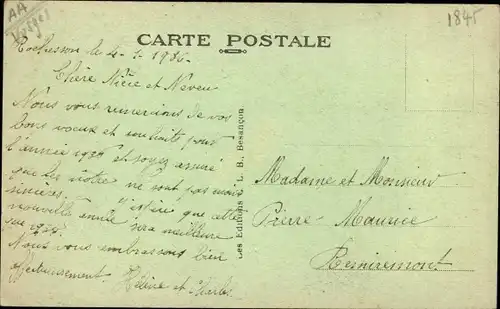 AA
Vosges
1845
CARTE POSTALE
Rochesson le 4-1-1936.
Chère Nièce et Neveu
Nous vous remercions de vos
bons vœux et souhaits pour
l'année 1936 et soyez assuré
que les nôtres ne sont pas moins
sincères. J'espère que cette
nouvelle année sera meilleure
que 1935.
Nous vous embrassons bien
affectueusement. Hélène et Charles
Les Editions C. L. B., Besançon
Madame et Monsieur
Pierre-Maurice
Remiremont